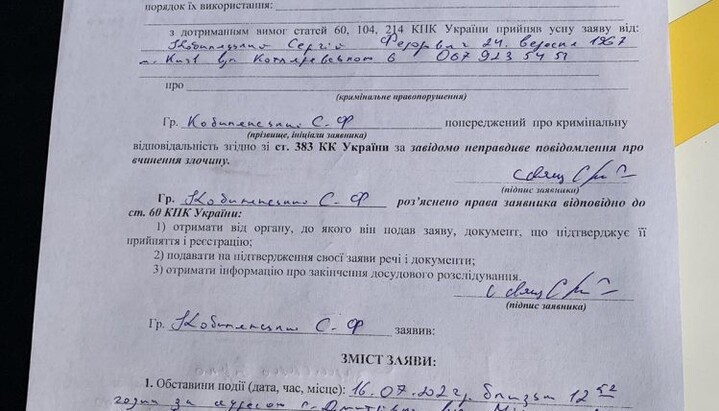 порядок їх використання:
з дотриманням вимог статей 60, 104, 214 КПК України прийняв усну заяву від:
Кобилянський Сергій Федорович 24. вересня 1967
м. Київ вул Котляревського 6 067 923 54 51
про
(кримінальне правопорушення)
Гр. Кобилянський С-Ф попереджений про кримінальну
(прізвище, ініціали заявника)
відповідальність згідно зі ст. 383 КК України за завідомо неправдиве повідомлення про
вчинення злочину.
(підпис заявника)
Гр. Кобилянський С-Ф роз’яснено права заявника відповідно до
ст. 60 КПК України:
1) отримати від органу, до якого він подав заяву, документ, що підтверджує її
прийняття і реєстрацію;
2) подавати на підтвердження своєї заяви речі і документи;
3) отримати інформацію про закінчення досудового розслідування.
(підпис заявника)
Гр. Кобилянський С-Ф заявив:
ЗМІСТ ЗАЯВИ:
1. Обставини події (дата, час, місце): 16.07.202 р. близько 12
годин за адресою